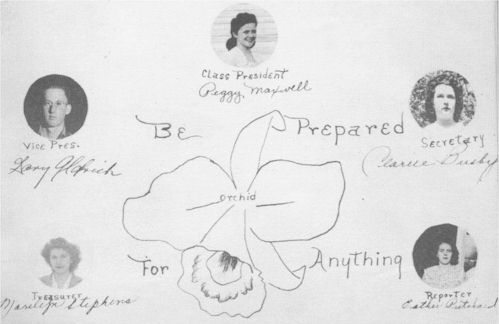 Class President
Peggy Maxwell
Vice Pres.
Gary Aldrich
Be Prepared
Secretary
Clarice Busby
Orchid
For Anything
Treasurer
Marilyn Stephens
Reporter